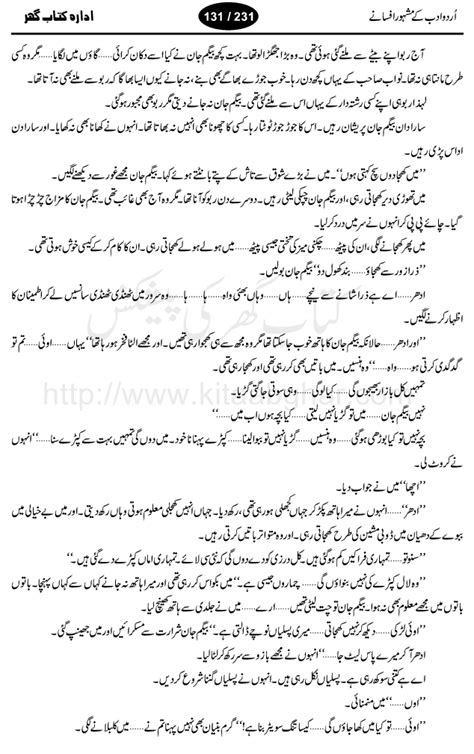 اُردو ادب کے مشہور افسانے
131 / 231
ادارہ کتاب گھر
آج ربو اپنے بیٹے سے ملنے گئی ہوئی تھی۔ وہ بڑا جھگڑالو تھا۔ بہت کچھ بیگم جان نے کیا اسے دکان کرائی......گاؤں میں لگایا......مگر وہ کسی
طرح مانتا ہی نہ تھا۔ نواب صاحب کے یہاں کچھ دن رہا۔ خوب جوڑے بھاگے بھی بنے، نہ جانے کیوں ایسا بھاگا کہ ربو سے ملنے بھی نہ آتا تھا۔
لہٰذا ربو ہی اپنے کسی رشتہ دار کے یہاں اس سے ملنے گئی تھی۔ بیگم جان نہ جانے دیتی مگر ربو بھی مجبور ہو گئی۔
سارا دن بیگم جان پریشان رہیں۔ اس کا جوڑ جوڑ ٹوٹتا رہا۔ کسی کا چھونا بھی انہیں نہ بھاتا تھا۔ انہوں نے کھانا بھی نہ کھایا۔ اور سارا دن
اداس پڑی رہیں۔
’’میں کھجا دوں سچ کہتی ہوں‘‘۔ میں نے بڑے شوق سے تاش کے پتے بانٹتے ہوئے کہا۔ بیگم جان مجھے غور سے دیکھنے لگیں۔
میں تھوڑی دیر کھجاتی رہی، اور بیگم جان چپکی لیٹی رہیں۔ دوسرے دن ربو کو آنا تھا۔ مگر وہ آج بھی غائب تھی۔ بیگم جان کا مزاج چڑچڑا ہوتا
گیا۔ چائے پی پی کر انہوں نے سر میں درد کر لیا۔
میں پھر کھجانے لگی، ان کی پیٹھ......چکنی میز کی تختی جیسی پیٹھ......میں ہولے ہولے کھجاتی رہی۔ ان کا کام کر کے کیسی خوش ہوتی تھی۔
’’ذرا زور سے کھجاؤ......بند کھول دو‘‘ بیگم جان بولیں۔
ادھر......اے ہے ذرا شانے سے نیچے......ہاں......وہاں بھئی واہ......ہا......ہا......وہ سرور میں ٹھنڈی ٹھنڈی سانسیں لے کر اطمینان کا
اظہار کرنے لگیں۔
’’اور ادھر......حالانکہ بیگم جان کا ہاتھ خوب جا سکتا تھا مگر وہ مجھ سے ہی کھجوا رہی تھیں۔ اور مجھے الٹا فخر ہو رہا تھا’’یہاں......اوئی......تم تو
گدگدی کرتی ہو......واہ......‘‘ وہ ہنسیں۔ میں باتیں بھی کر رہی تھی اور کھجا بھی رہی تھی۔
تمہیں کل بازار بھیجوں گی......کیا لو گی......وہی سوتی جاگتی گڑیا۔
نہیں بیگم جان......میں تو گڑیا نہیں لیتی......کیا بچہ ہوں اب میں......‘‘
بچہ نہیں تو کیا بوڑھی ہو گئی......وہ ہنسیں......گڑیا نہیں تو ببوا لینا......کپڑے پہنانا خود۔ میں دوں گی تمہیں بہت سے کپڑے سنا......‘‘انہوں
نے کروٹ لی۔
’’اچھا‘‘ میں نے جواب دیا۔
’’ادھر‘‘......انہوں نے میرا ہاتھ پکڑ کر جہاں کھجلی ہو رہی تھی، رکھ دیا۔ جہاں انہیں کھجلی معلوم ہوتی وہاں رکھ دیتی۔ اور میں بے خیالی میں
ببوے کے دھیان میں ڈوبی مشین کی طرح کھجاتی رہی۔ اور وہ متواتر باتیں کرتی رہیں۔
’’سنو تو......تمہاری فراکیں کم ہو گئی ہیں۔ کل درزی کو دے دوں گی کہ نئی سی لائے۔ تمہاری اماں کپڑے دے گئی ہیں۔‘‘
’’وہ لال کپڑے کی نہیں بنواؤں گی......چماروں جیسی ہے۔‘‘ میں بکواس کر رہی تھی اور میرا ہاتھ نہ جانے کہاں سے کہاں پہنچا۔ باتوں
باتوں میں مجھے معلوم بھی نہ ہوا۔ بیگم جان تو چت لیٹی تھیں......ارے......میں نے جلدی سے ہاتھ کھینچ لیا۔
’’اوئی لڑکی......دیکھ کر نہیں کھجاتی......میری پسلیاں نوچے ڈالتی ہے۔‘‘ بیگم جان شرارت سے مسکرائیں اور میں جھینپ گئی۔
ادھر آ کر میرے پاس لیٹ جا......‘‘انہوں نے مجھے بازو سے سر رکھ کر لٹا لیا۔
اے ہے کتنی سوکھ رہی ہے۔ پسلیاں نکل رہی ہیں۔ انہوں نے پسلیاں گننا شروع کر دیں۔
’’اوں......‘‘ میں منمنائی۔
’’اوئی......تو کیا میں کھا جاؤں گی......کیسا تنگ سویٹر بنا ہے!’’ گرم بنیان بھی نہیں پہنا تم نے......میں کلبلانے لگی۔
کتاب گھر کی پیشکش
http://www.kitaabghar.com